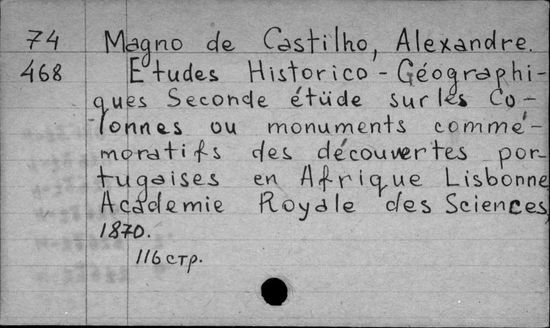 74 Magno de Castilho, Alexandre.
468 Etudes Historico-Géographi-
ques Seconde étüde sur les Co-
lonnes ou monuments commé-
moratifs des découvertes por-
tugaises en Afrique Lisbonne
Academie Royale des Sciences,
1870.
116 стр.